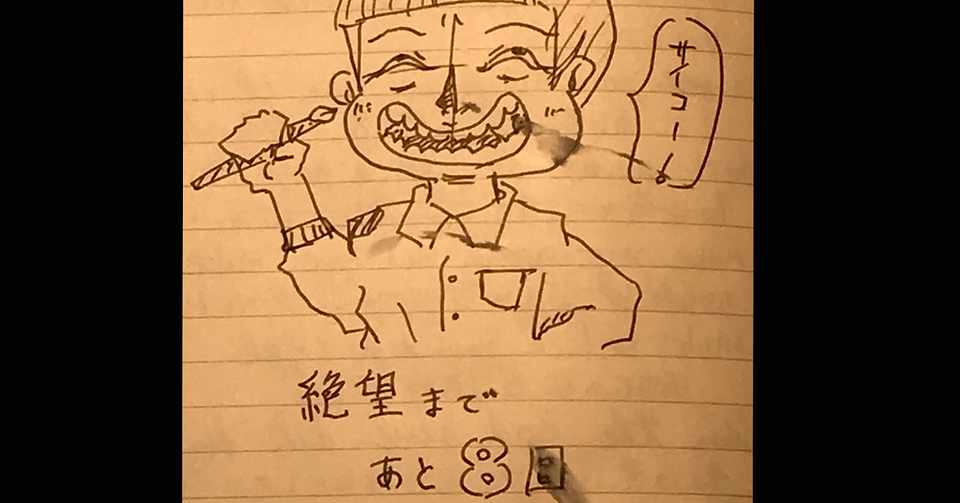 サイコー!
絶望まで
あと8日